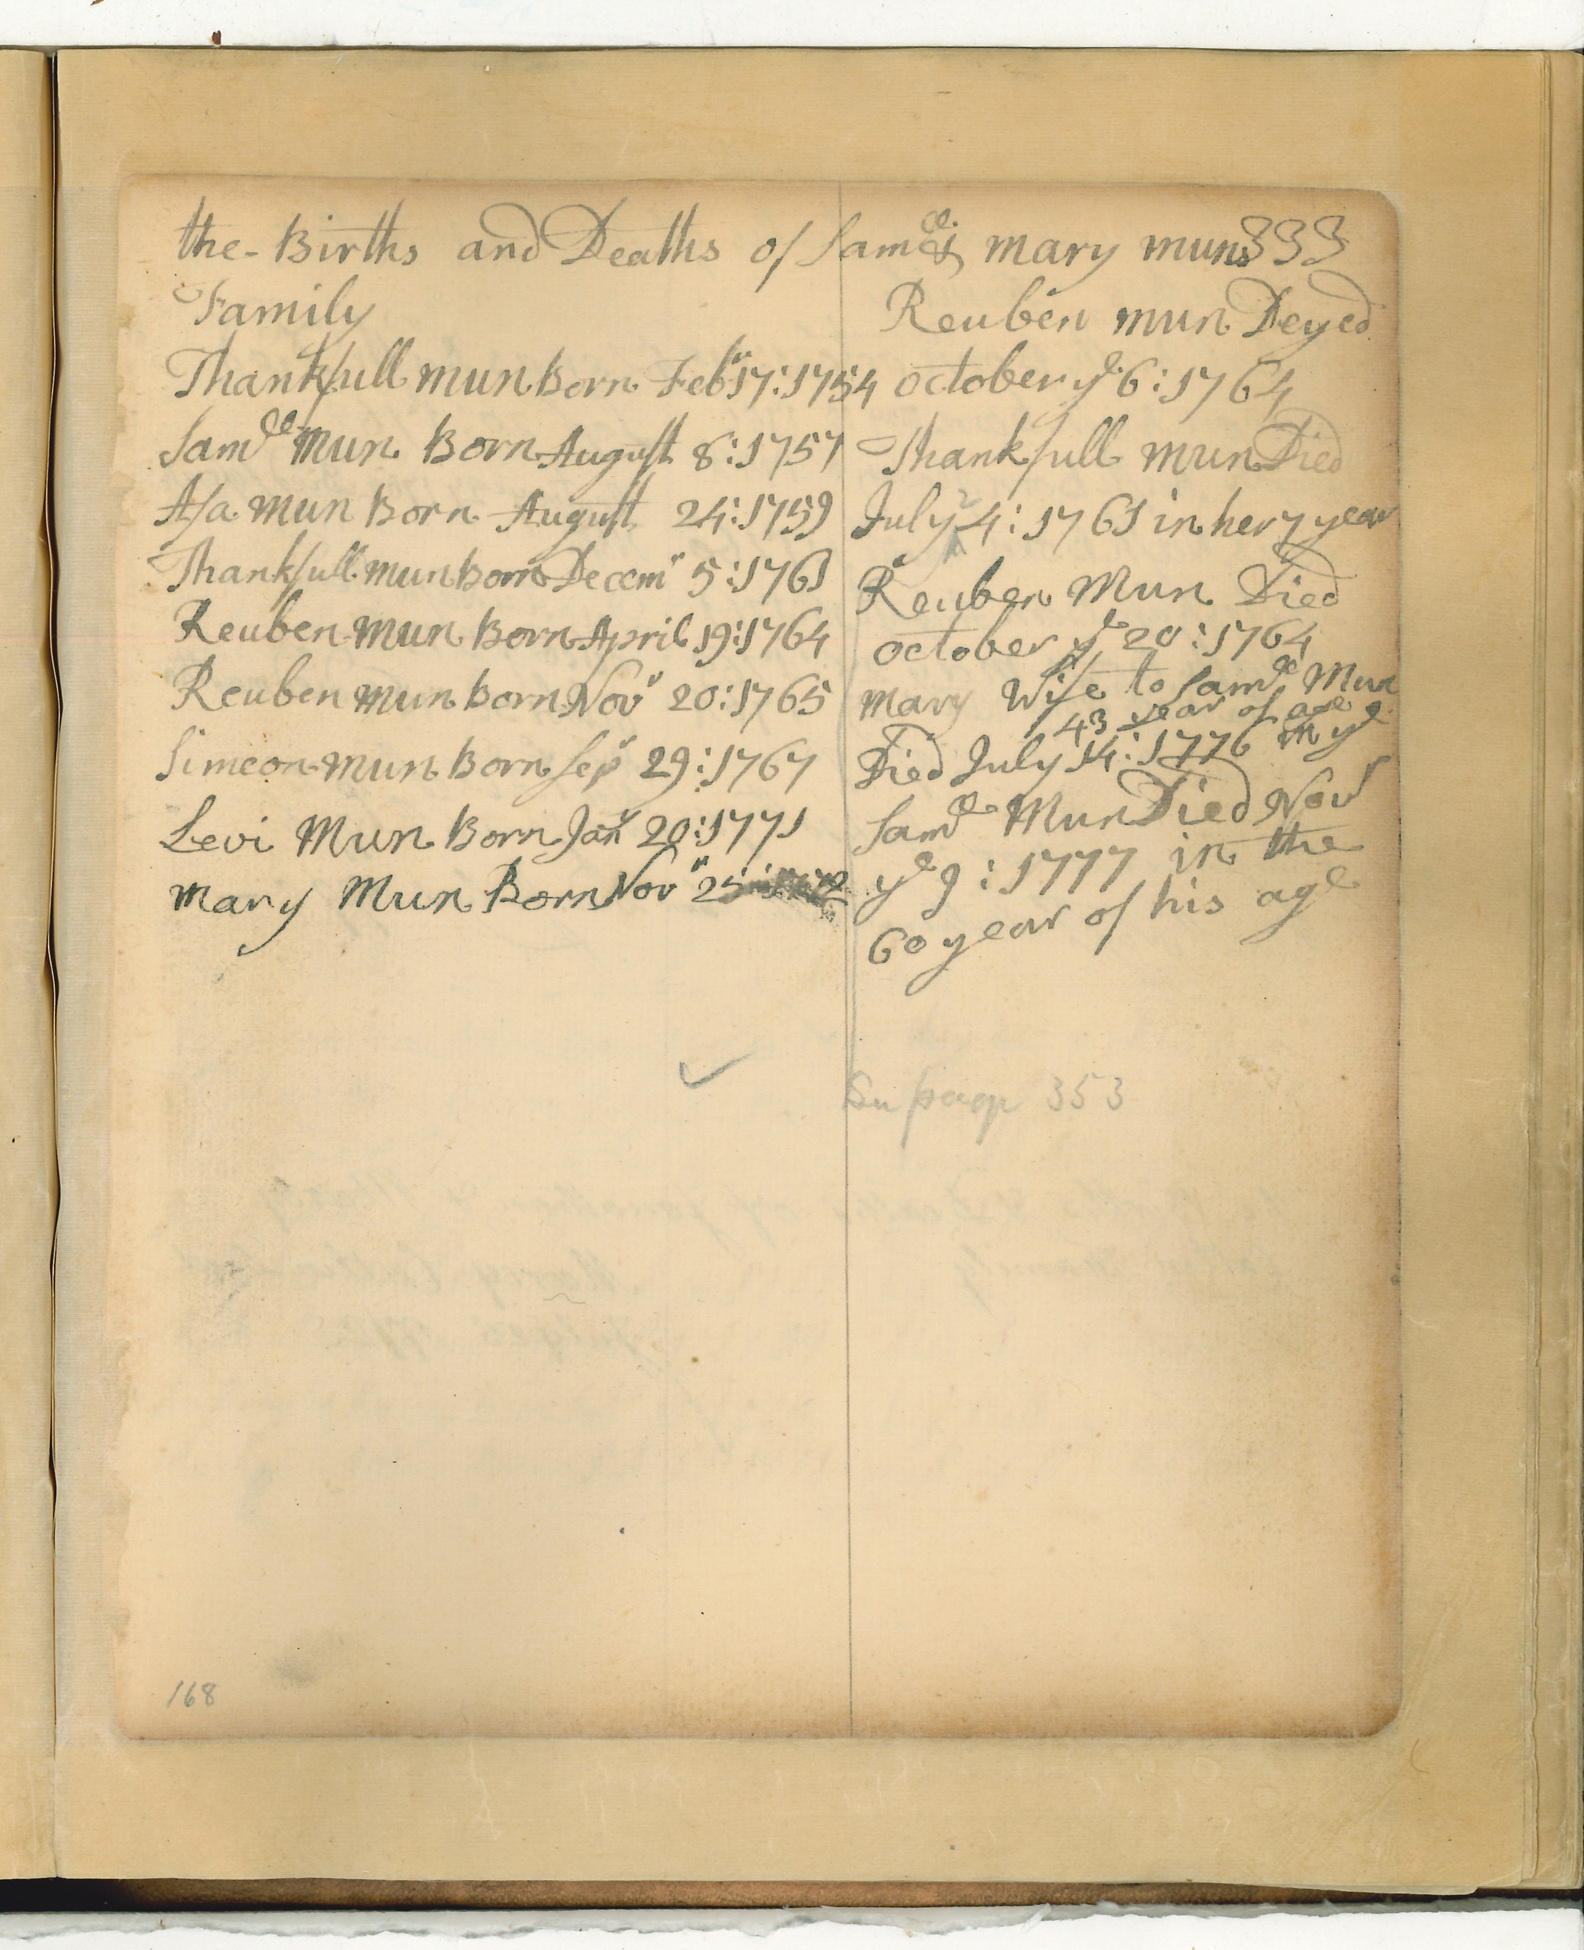 the Births and Deaths of Samll & mary muns 333
Family
Thankfull mun Born Febr 17:1754
Samll mun Born August 8:1757
Asa mun Born August 24:1759
Thankfull mun Born Decemr 5:1761
Reuben mun Born April 19:1764
Reuben mun Born Novr 20:1765
Simeon mun Born Sepr 29:1767
Levi Mun Born Janr 20:1771
mary Mun Born Novr 25
Reuben mun Deyed
october ye 6:1764
Thankfull mun Died
July 4:1761 in her 7 year
Reuben Mun Died
october ye 20:1764
mary Wife to Samll Mun
Died July 14:1776 in ye
43 year of age
Samll Mun Died Novr
ye 9:1777 in the
60 year of his age
page 353
168